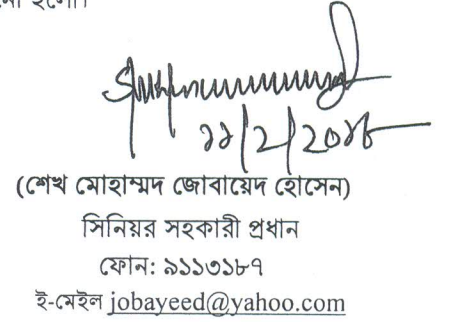 হলো।
১১/2/20১৮
(শেখ মোহাম্মদ জোবায়েদ হোসেন)
সিনিয়র সহকারী প্রধান
ফোন: ৯১১৩১৮৭
ই-মেইল jobayeed@yahoo.com